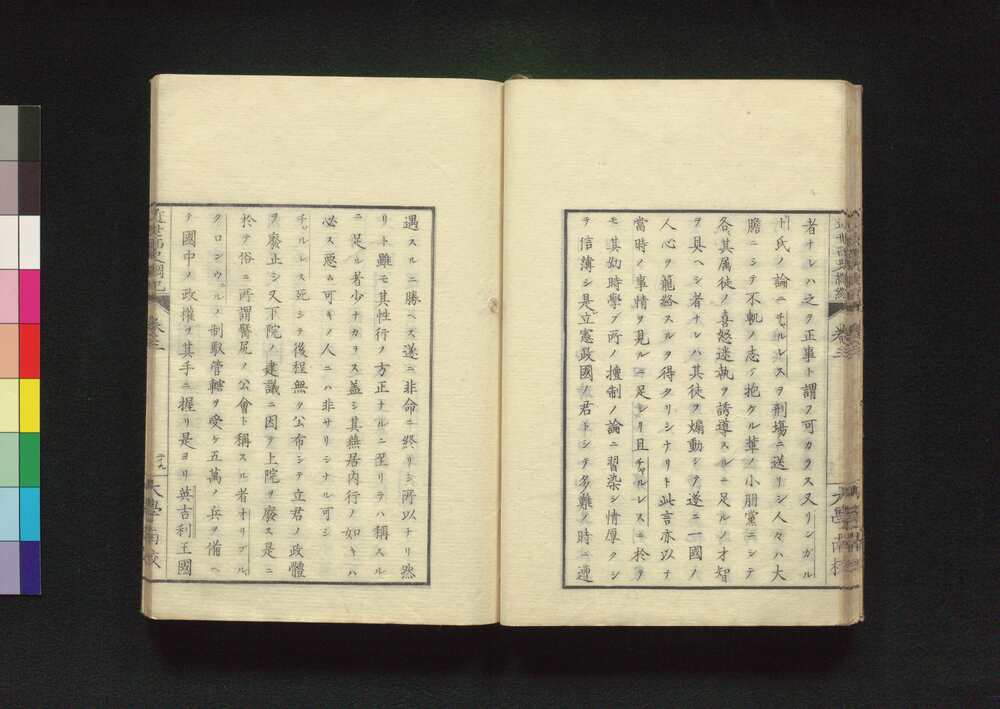 者ナレハ之ヲ正事ト謂フ可カラス又リンガル
ト氏ノ論ニチャルレスヲ刑場ニ送リシ人々ハ大
膽ニシテ不軌ノ志ヲ抱ケル輩ノ小朋黨ニシテ
各其属徒ノ喜怒迷執ヲ誘導スルニ足ルノ才智
ヲ具ヘシ者ナレハ其徒ヲ煽動シテ遂ニ一國ノ
人心ヲ籠絡スルヲ得タリシナリト此言亦以テ
當時ノ事情ヲ見ルニ足レリ且チャルレスニ於テ
モ其幼時學フ所ノ擅制ノ論ニ習染シ情厚クシ
テ信薄シ是立憲政國ノ君トシテ多難ノ時ニ遭
遇スルニ勝ヘス遂ニ非命ニ終リシ所以ナリ然
リト雖モ其性行ノ方正ナルニ至リテハ稱スル
ニ足ル者少ナカラス蓋シ其燕居内行ノ如キハ
必ス惡ム可キノ人ニハ非サリシナル可シ
チャルレス死シテ後程無ク公布シテ立君ノ政體
ヲ廢止シ又下院ノ建議ニ因テ上院ヲ廢ス是ニ
於テ俗ニ所謂臀尻ノ公會ト稱スル者オリブル
クロンウェルノ制馭管轄ヲ受ケ五萬ノ兵ヲ備ヘ
テ國中ノ政權ヲ其手ニ握リ是ヨリ英吉利王國
近世西史綱紀
卷三
大學南校